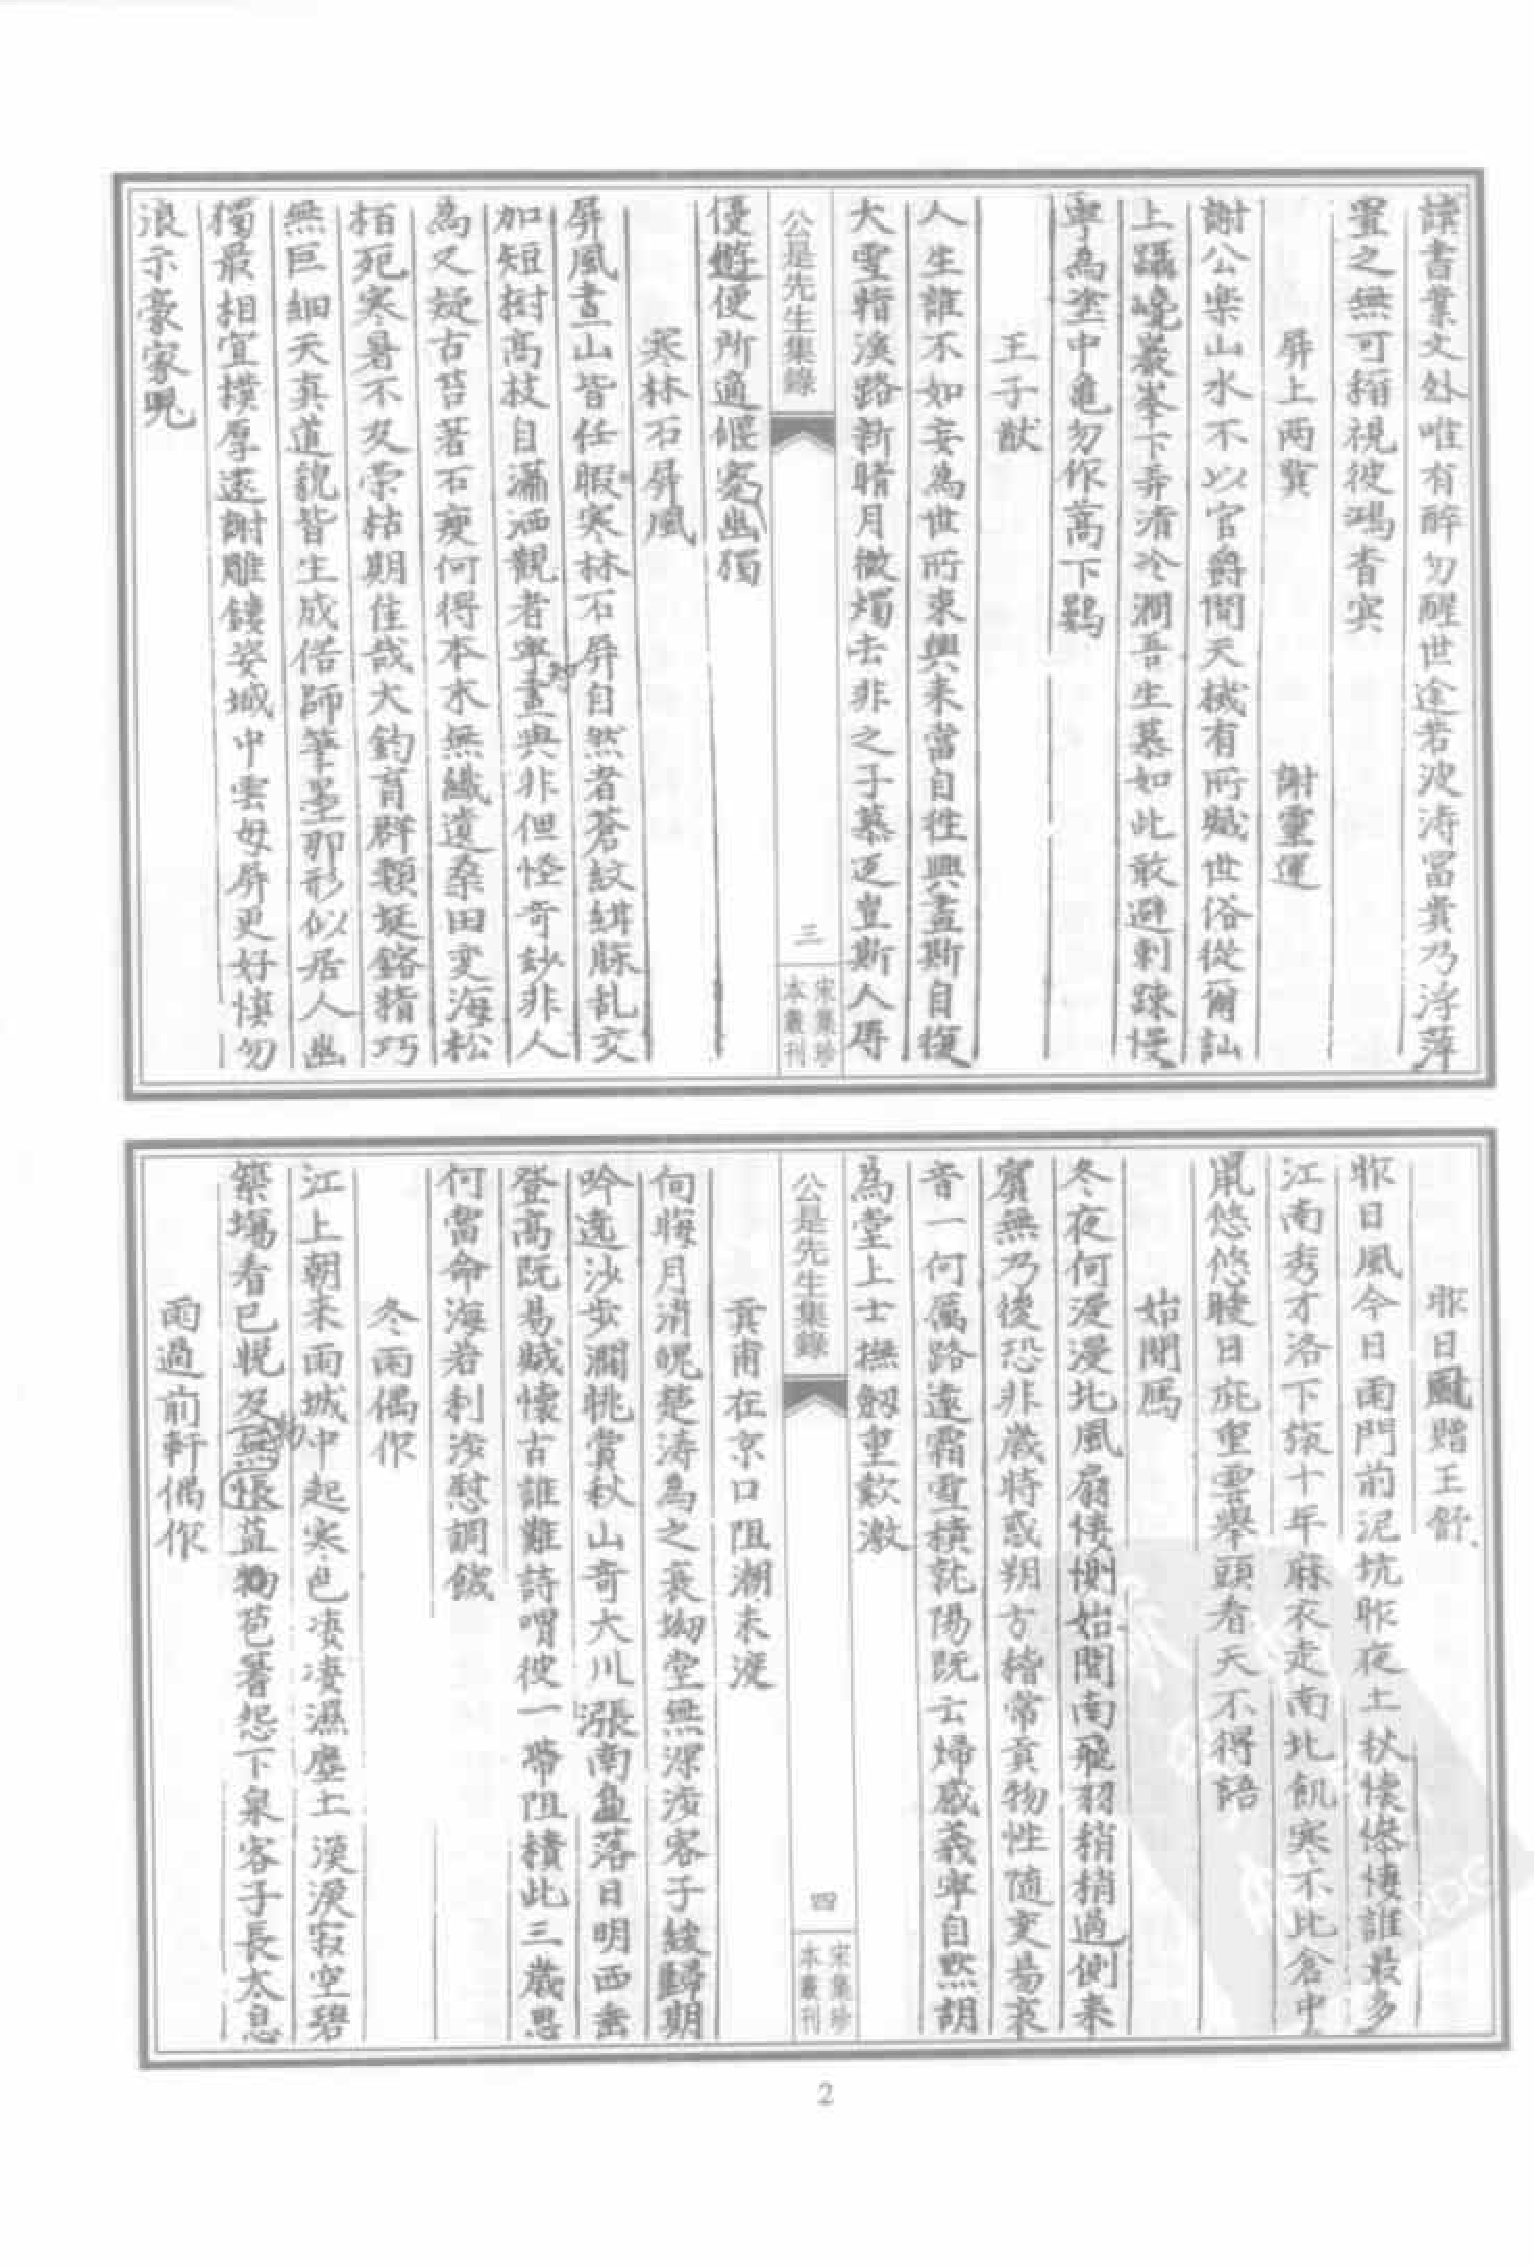 讀書業文处唯有醉勿醒世途若波涛冨貴乃浮萍
置之無可稻視彼鴻杳宾
屏上两賛　　謝靈運
謝公樂山水不以官爵間天棫有所賦世俗從爾訕
上躡嶢巖峯下弄清冷澗吾生慕如此敢避刺疎慢
寕為塗中亀勿作蒿下鷃
王子猷
人生誰不如妄為世所束興来當自徃興盡斯自復
大雪暗溪路新晴月微燭去非之子慕迋豈斯人辱
公是先生集錄
三
宋集珍
本叢刊
優遊便所適偃蹇幽獨
寒林石屏風
屏風畫山皆任暇寒林石屏自然者蒼紋緋脉乱交
加短樹高枝自瀟洒觀者寕畫與非但怪奇玅非人
為又疑古苔著石瘦何得本水無纎遺桑田变海松
栢死寒暑不攵荣枯期佳哉大鈞育群類埏鎔精巧
無巨細天真道貌皆生成俗師筆墨那形似居人幽
獨最相宜樸厚遂謝雕鏤姿城中雲母屏更好慎勿
浪示豪家皃
昨日風贈王舒
昨日風今日雨門前泥坑昨夜土秋懐悠悽誰最多
江南秀才洛下張十年麻衣走南北飢寒不比倉中
鼠悠悠睦日庇重雲舉頭看天不得語
始聞鴈
冬夜何漫漫北風扇悽惻始聞南飛羽稍稍過側来
賔無乃後恐非歳時惑朔方稽常貢物性随变易哀
音一何厲路遠霜雪積就陽既云婦感義寕自黙胡
為堂上士撫劔重歎激
公是先生集錄
四
宋集珍
本叢刊
貢甫在京口阻潮未渡
向晦月消魄楚涛為之衰坳堂無深涉客子緩歸期
吟遶沙步濶眺賞秋山奇大川漲南盡落日明西垂
登高既易賦懐古誰難詩喟彼一帶阻積此三歳思
何當命海若利涉慰調飢
冬雨偶作
江上朝来雨城中起寒色凄凄濕塵土漠淚寂空碧
築塲看已晩及無悵葅物苞著怨下泉客子長太息
雨過前軒偶作
2